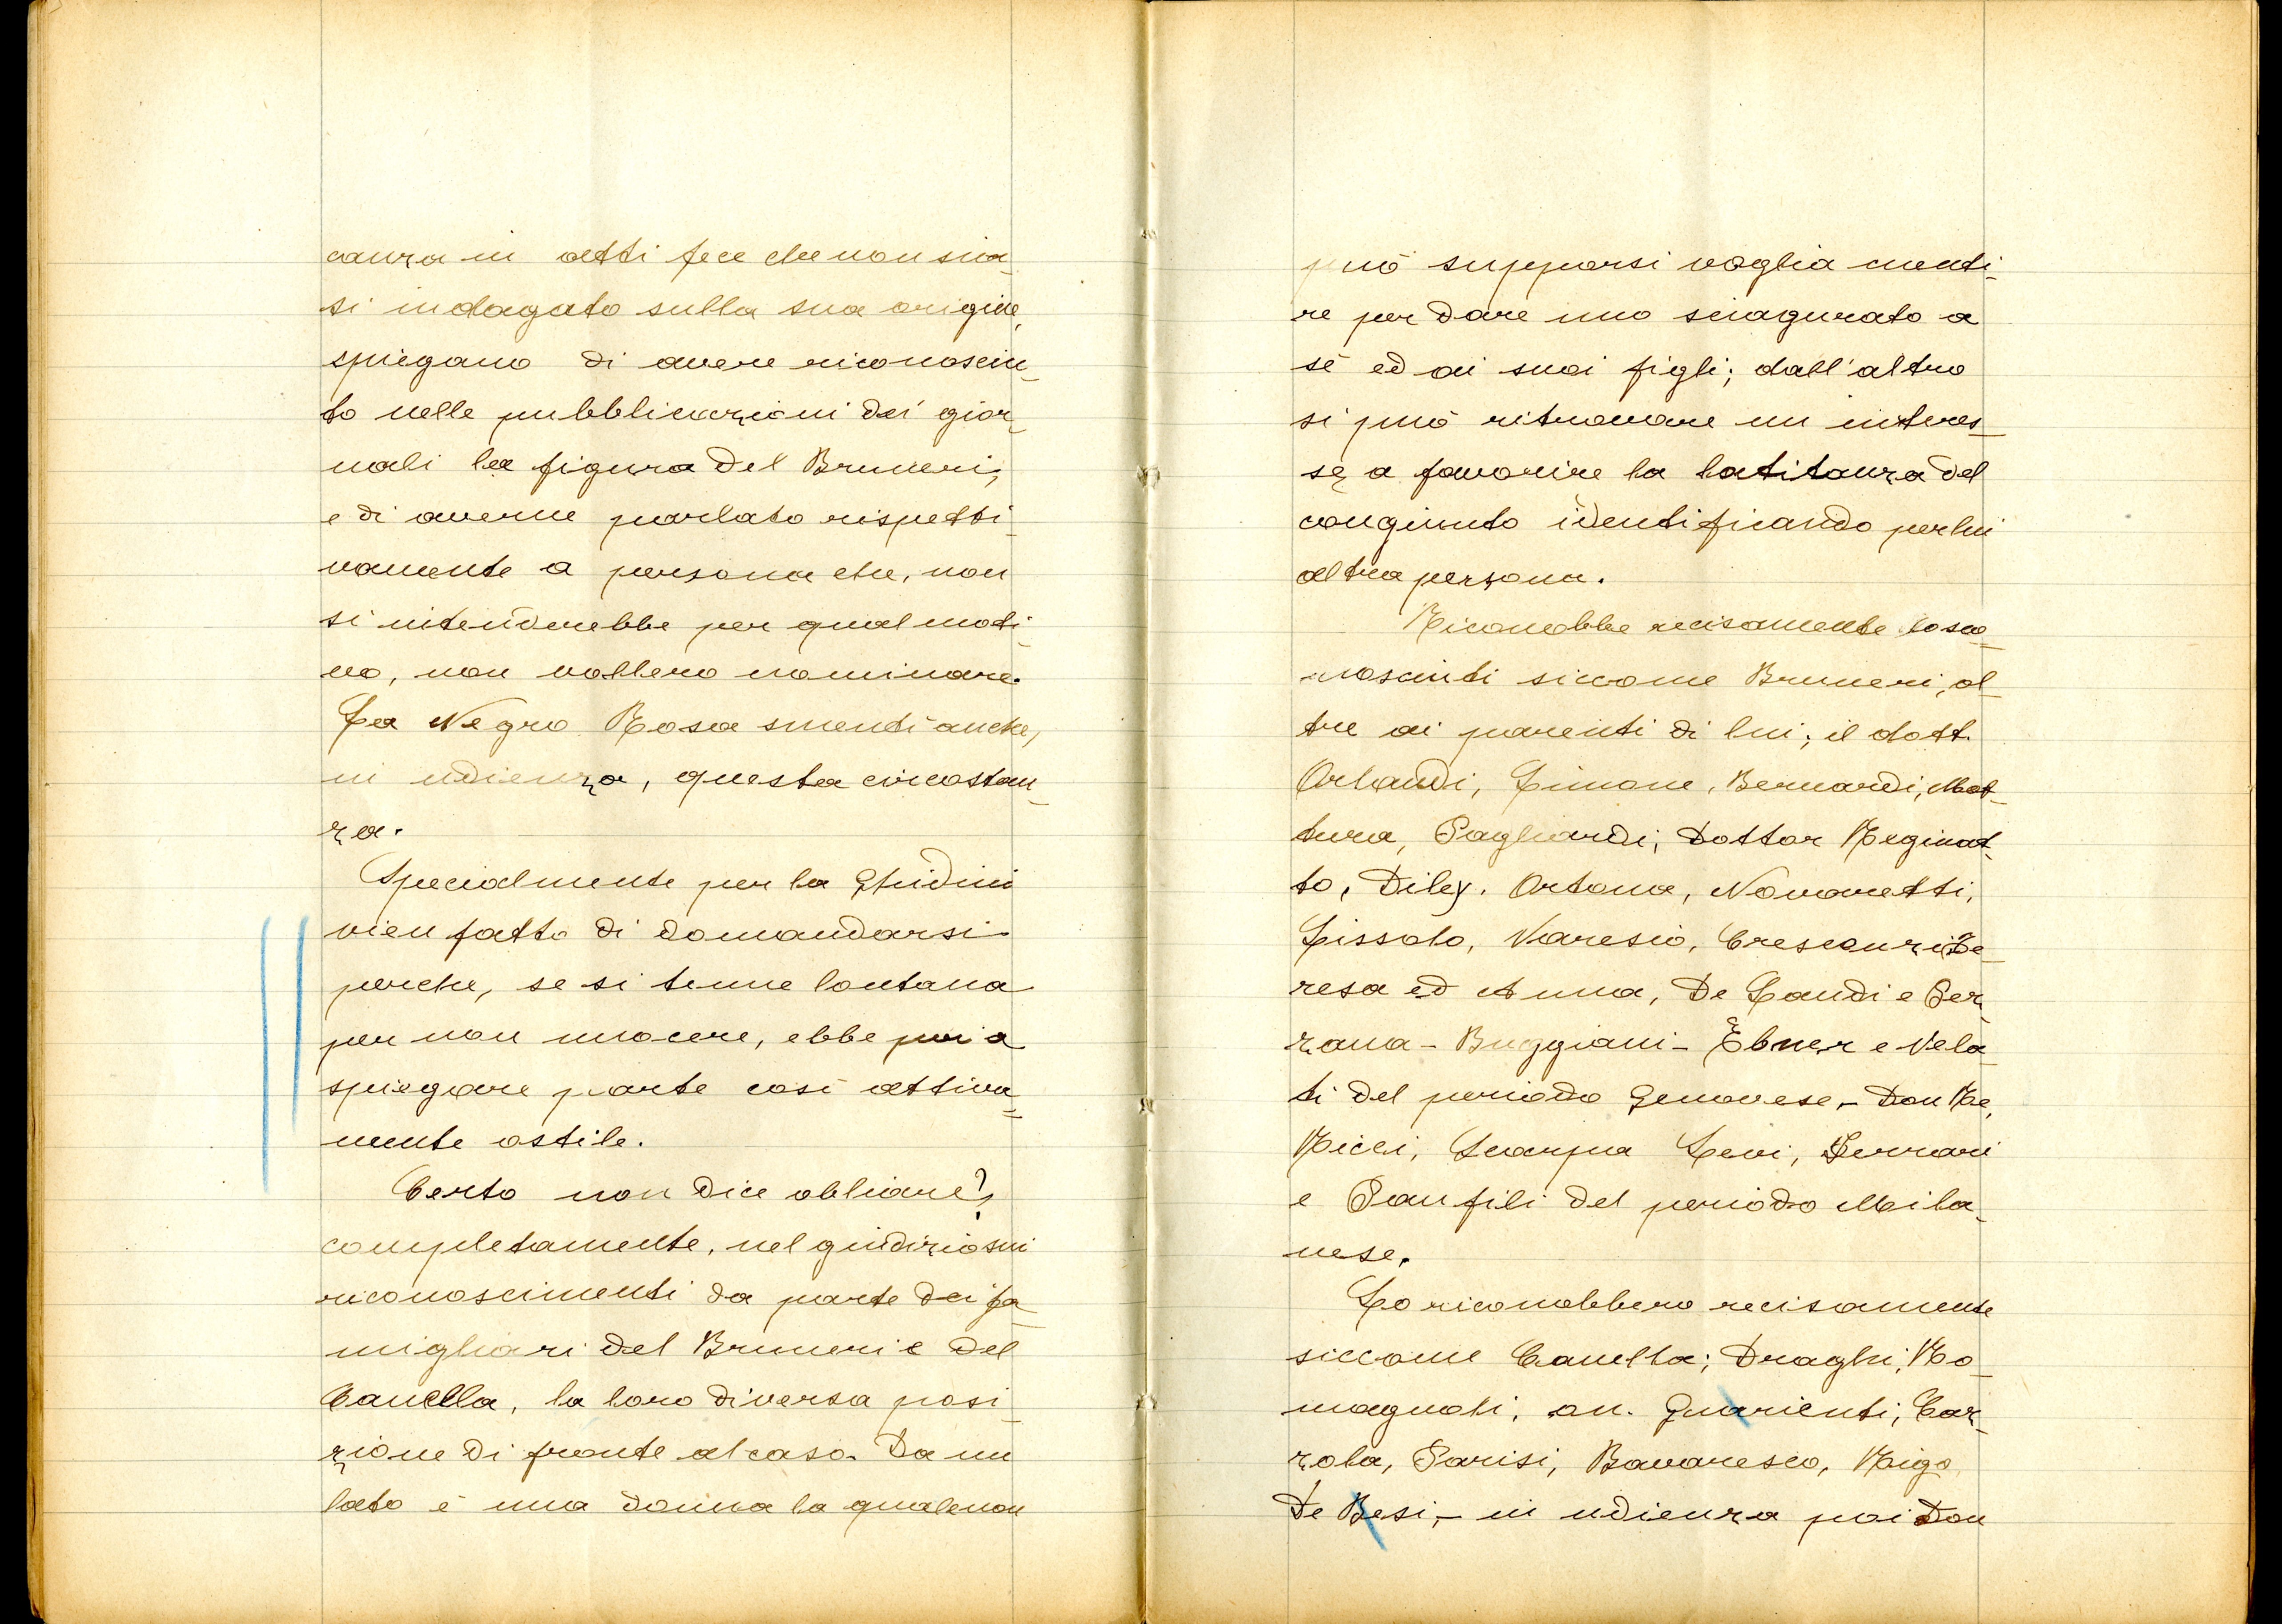 canza in atti fece che non sia-
si indagato sulla sua origine,
spiegano di avere riconosciu-
to nelle pubblicazioni dei gior-
nali la figura del Bruneri,
e di averne parlato rispetti-
vamente a persona che, non
si intenderebbe per qual moti-
vo, non vollero nominare.
La Negro Rosa smentì anche,
in udienza, questa circostan-
za.
Specialmente per la Ghidini
vien fatto di domandarsi
perche, se si tenne lontana
per non nuocere, ebbe poi a
spiegare parte così attiva-
mente ostile.
Certo non dice obliare?,
completamente, nel giudizio sui
riconoscimenti da parte dei fa-
migliari del Bruneri e del
Canella, la loro diversa posi-
zione di fronte al caso. Da un
lato è una donna la quale non
può supporsi voglia menti-
re per dare uno sciagurato a
sè ed ai suoi figli; dall'altro
si può ritrovare un interes-
se a favorire la latitanza del
congiunto identificando per lui
altra persona.
Riconobbe recisamente lo sco-
nosciuti siccome Bruneri, ol-
tre ai parenti di lui; il dott.
Orlandi, Limone, Bernardi, Mat-
tura, Pagliardi, Dottor Reginat-
to, Diley. Ortona, Novaretti,
Lissolo, Varesio, Crescenzi Te-
resa ed Anna, De Landi e Per-
rana - Buggiani - Ebner e Vela-
ti del periodo Genovese - Don Re,
Ricci, Scarpa Levi, Ferrari
e Panfili del periodo Mila-
nese.
Lo riconobbero recisamente
siccome Canella; Draghi, Ro-
magnoli, on. Guarienti, Car-
zola, Parisi, Bavaresco, Rigo
De Besi, - in udienza poi Don